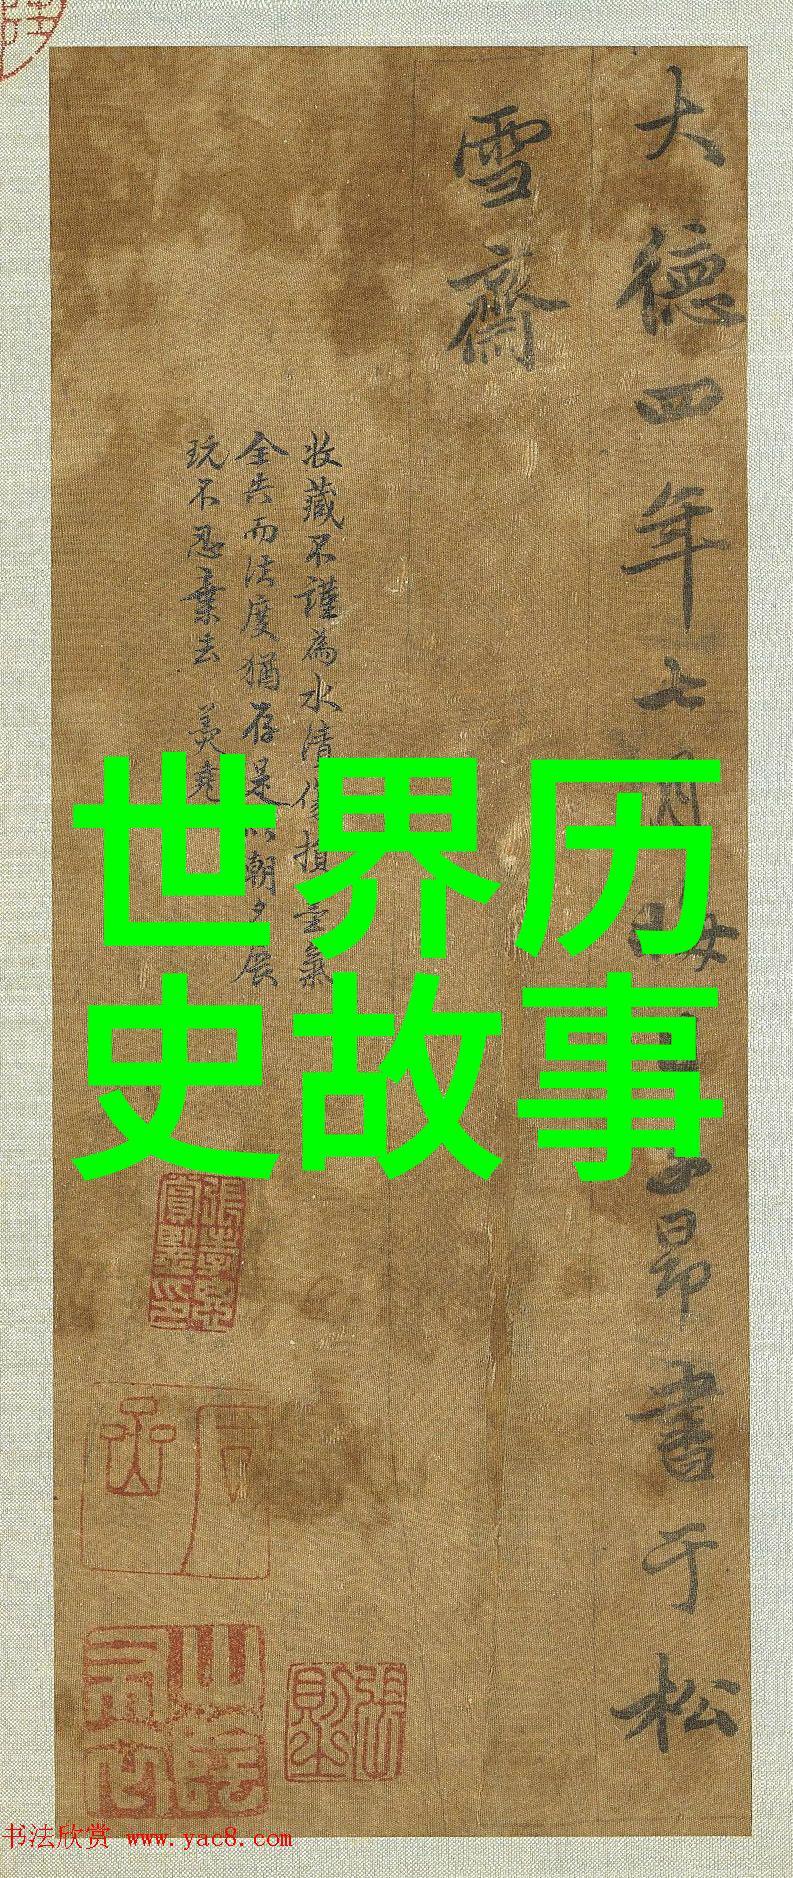 大德四年七月晦日子昂書于松
雪齋
收藏不謹為水漬傷損氣
全失而法度猶存是以朝夕展
玩不忍棄去
世界历
史故事
張則之
书法欣赏 www.yac8.com